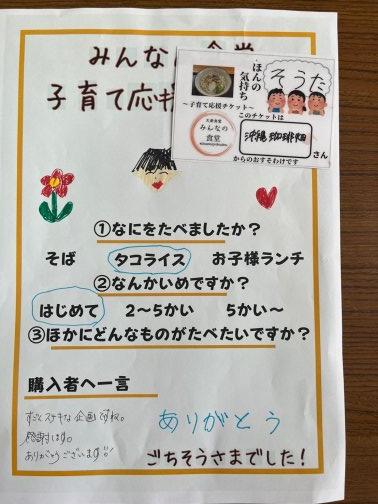 みんなの食堂
子育て応
ほんの
気持ち
そうた
～子育て応援チケット～
このチケットは
みんなの
食堂
沖縄珈琲畑
さん
からのおすそわけです
①なにをたべましたか？
そば タコライス お子様ランチ
②なんかいめですか？
はじめて 2～5かい 5かい～
③ほかにどんなものがたべたいですか？
購入者へ一言
すごくステキな企画ですね。
感謝です。
ありがとうございます!!
ありがとう
ごちそうさまでした！